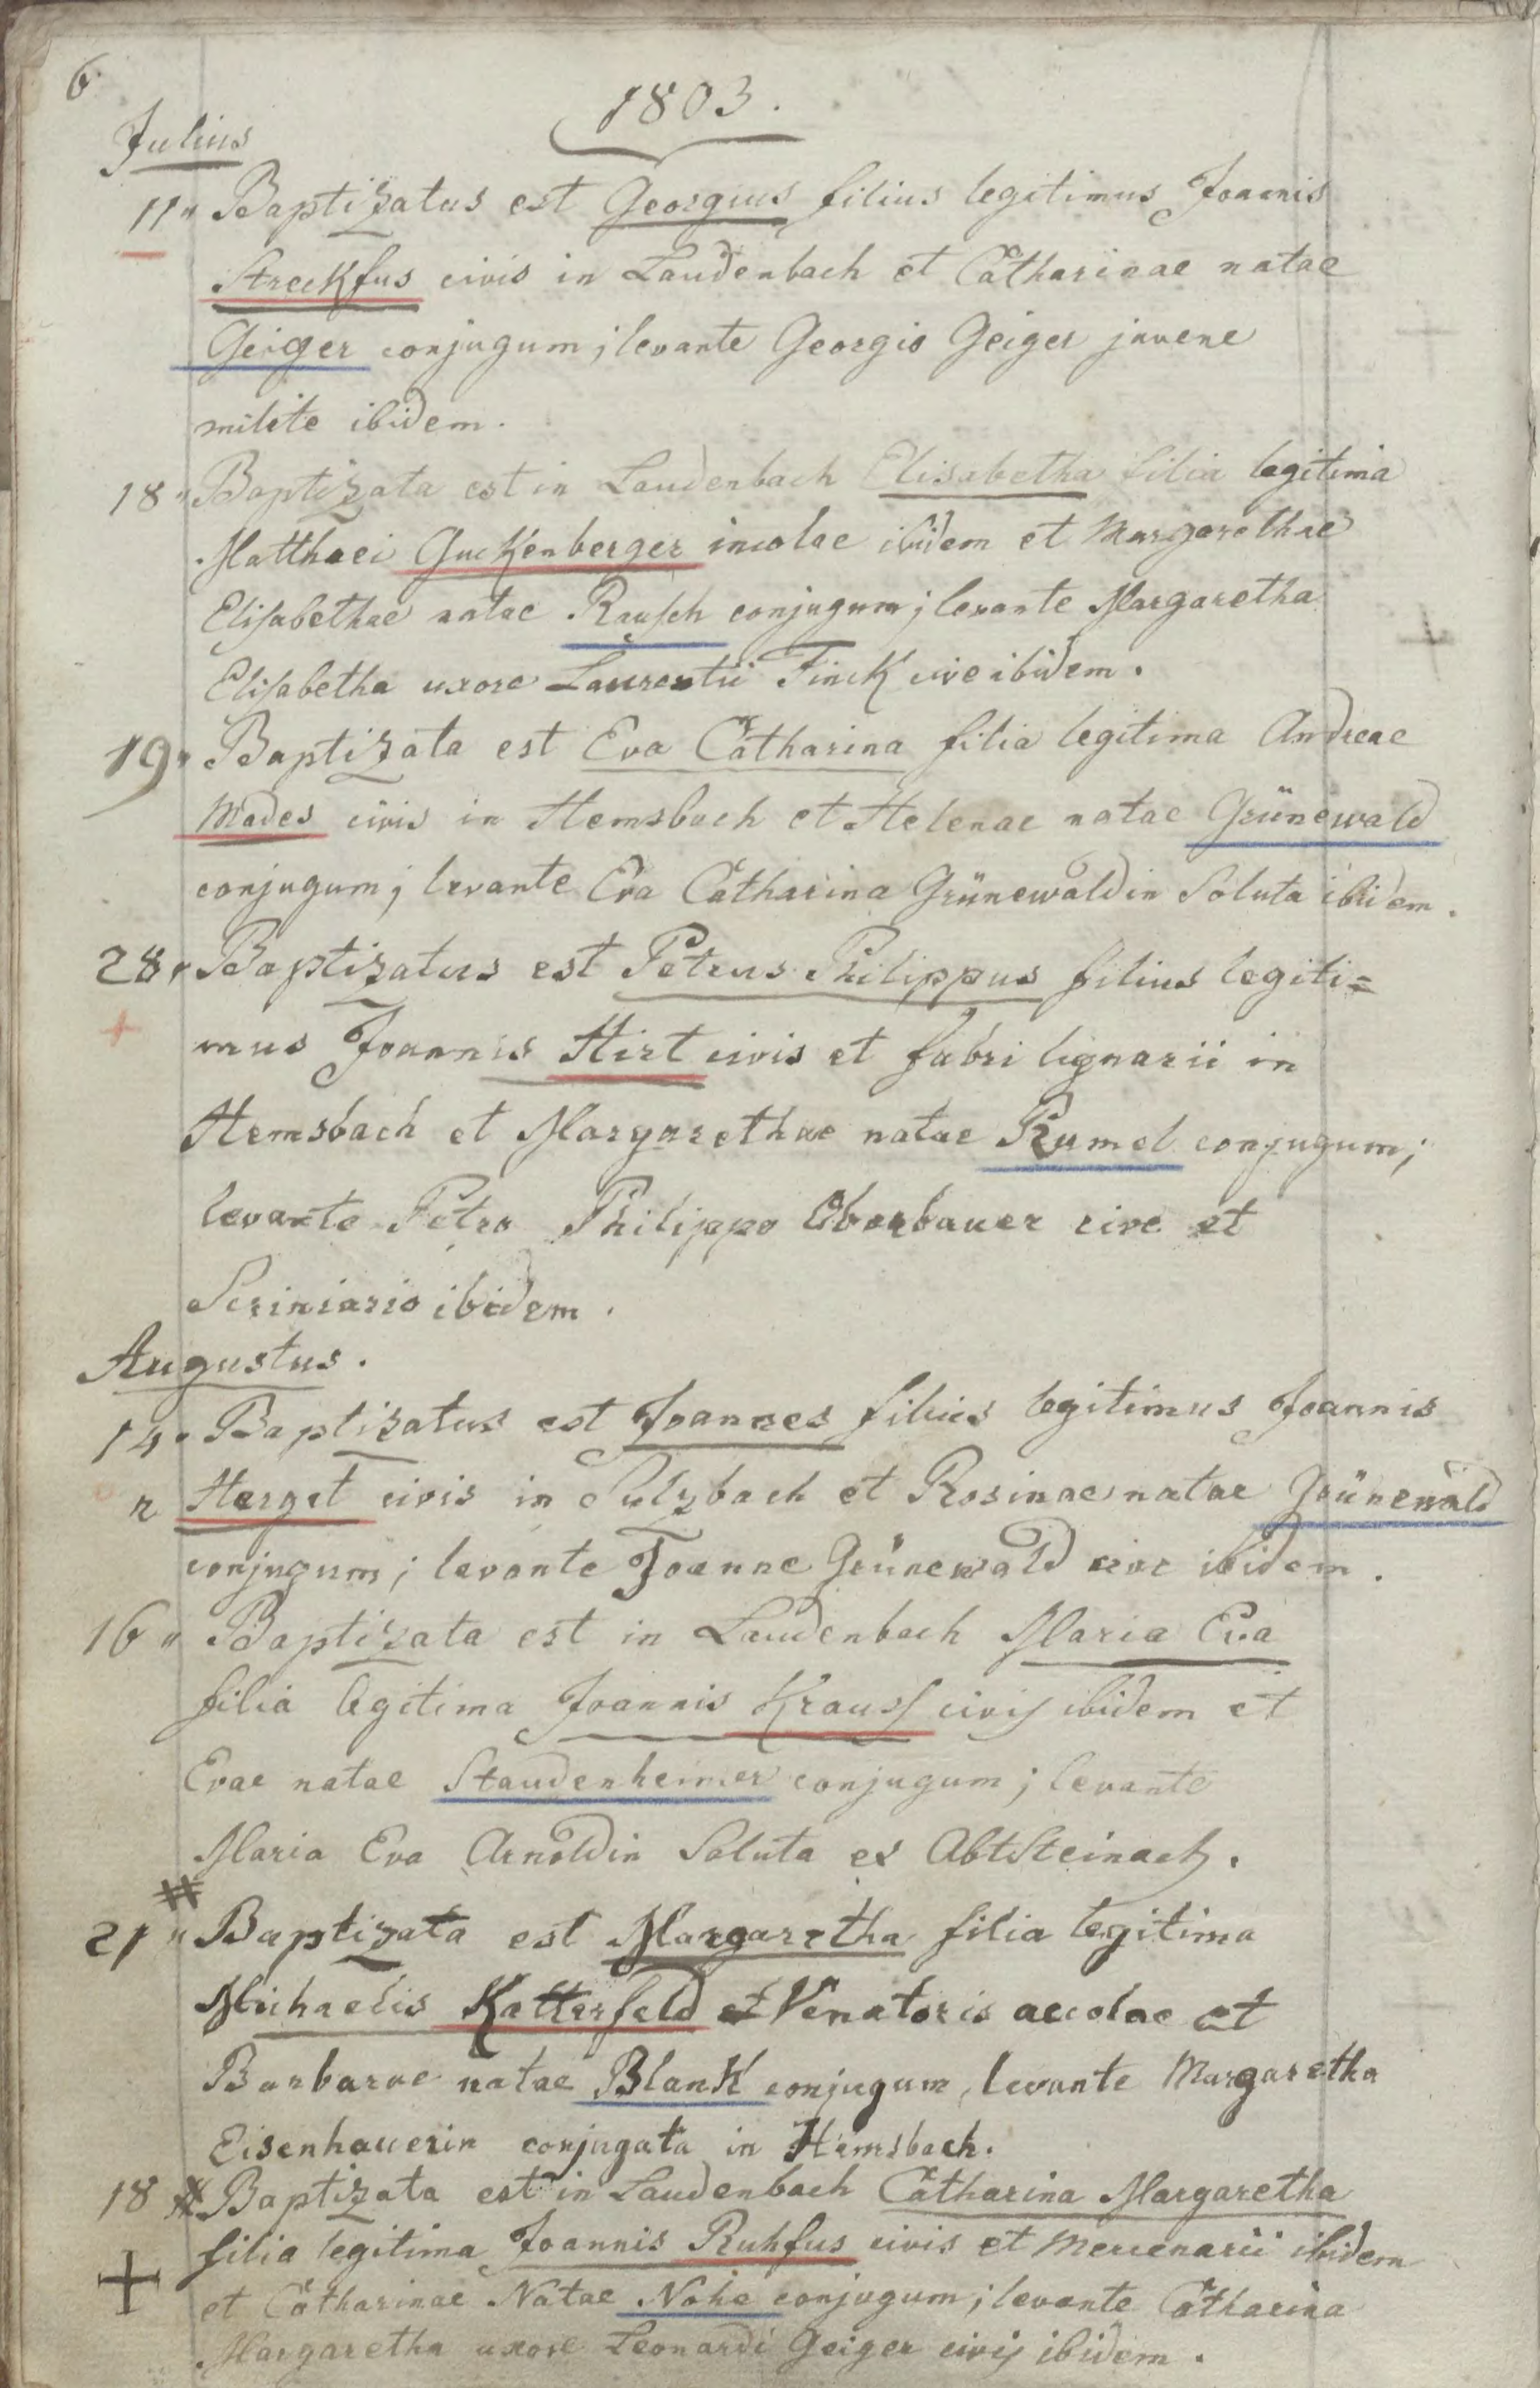 6
1803.
Julius
11" Baptizatus est Georgius filius legitimus Joannis
Streckfus civis in Laudenbach et Catharinae natae
Geiger conjugum; levante Georgio Geiger juvene
milite ibidem.
18" Baptizata est in Laudenbach Elisabetha filia legitima
Matthaei Guckenberger incolae ibidem et Margarethae
Elisabethae natae Rausch conjugum; levante Margaretha
Elisabetha uxore Laurentii Finck cive ibidem.
19" Baptizata est Eva Catharina filia legitima Andreae
Mades civis in Hemsbach et Helenae natae Grünewald
conjugum; levante Eva Catharina Grünewaldin Soluta ibidem.
28" Baptizatus est Petrus Philippus filius legiti=
mus Joannis Hirt civis et fabri lignarii in
Hemsbach et Margarethae natae Rumel conjugum;
levante Petro Philippo Oberbauer cive et
Scriniario ibidem.
Augustus.
14" Baptizatus est Joannes filius legitimus Joannis
Herget civis in Sulzbach et Rosinae natae Grünewald
conjugum; levante Joanne Grünewald cive ibidem.
16" Baptizata est in Laudenbach Maria Eva
filia legitima Joannis Krauss civis ibidem et
Evae natae Staudenheimer conjugum; levante
Maria Eva Arnoldin Soluta ex AbtSteinach.
#
21" Baptizata est Margaretha filia legitima
Michaelis Katterfeld et Venatoris accolae et
Barbarae natae Blank conjugum, levante Margaretha
Eisenhauerin conjugata in Hemsbach.
18 # Baptizata est in Laudenbach Catharina Margaretha
filia legitima Joannis Ruhfus civis et Mercenarii ibidem
+ et Catharinae Natae Nohe conjugum; levante Catharina
Margaretha uxore Leonardi Geiger civis ibidem.